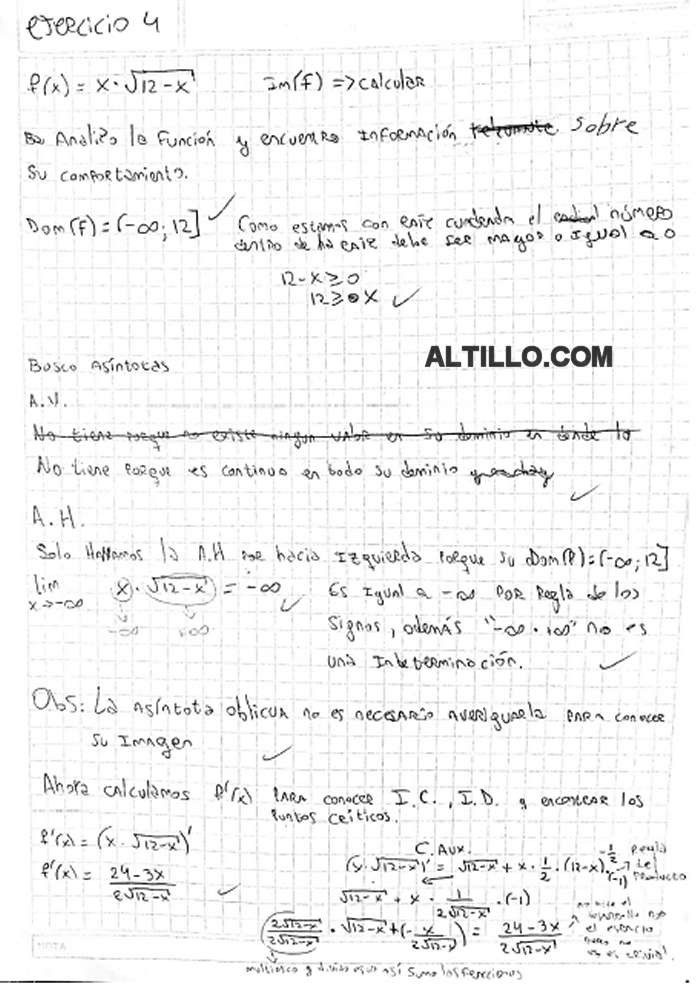 ejercicio 4
f(x) = x · √12-x    Im(f) => calcular
Analizo la función y encuentro información sobre
su comportamiento.
Dom(f) = (-∞; 12] ✓ Como estamos con raíz cuadrada el número
dentro de la raíz debe ser mayor o igual a 0
12 - x ≥ 0
12 ≥ x ✓
ALTILLO.COM
Busco Asíntotas
A.V.
No tiene porque no existe ningun valor en su dominio en donde lo
No tiene porque es continua en todo su dominio ✓
A.H.
Solo Hallamos la A.H por hacia Izquierda porque su Dom(f) = (-∞; 12]
lim x→-∞ x · √12-x = -∞ ✓ Es Igual a -∞ por Regla de los
-∞ +∞ signos, además "-∞ · +∞" no es
una Indeterminación. ✓
Obs: La Asíntota oblicua no es necesario averiguarla para conocer
su Imagen ✓
Ahora calculamos f'(x) para conocer I.C., I.D. y encontrar los
puntos críticos.
f'(x) = (x · √12-x)'
C. Aux.
(x · √12-x)' = √12-x + x · 1/2 · (12-x)^-1/2 · (-1) → Regla del Producto
f'(x) = 24-3x / 2√12-x ✓
√12-x + x · 1/2√12-x · (-1)
2√12-x / 2√12-x · √12-x + (- x / 2√12-x) = 24-3x / 2√12-x
multiplico y divido así sumo las fracciones
NOTA